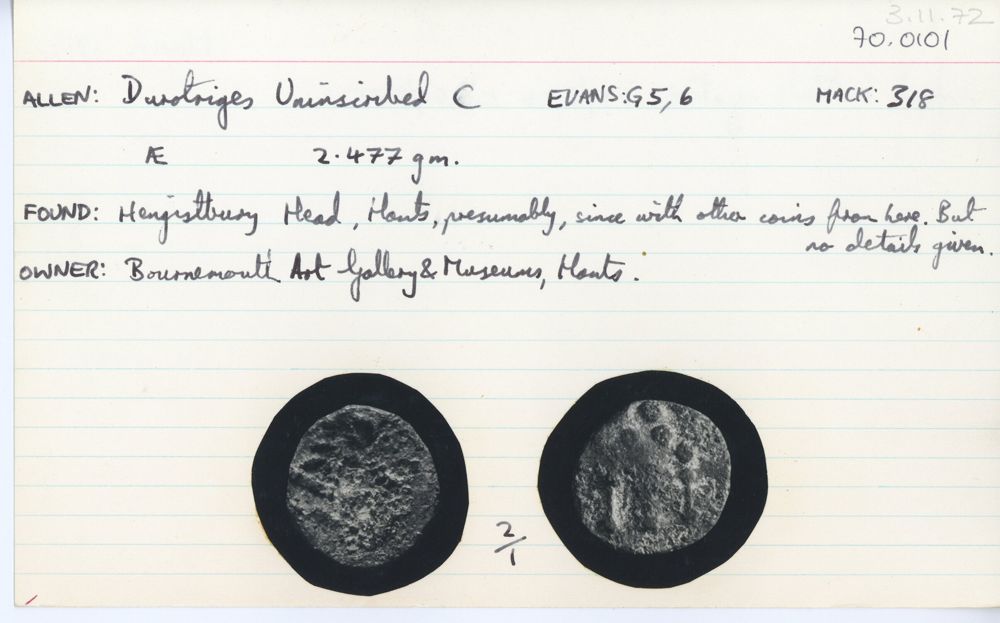 3.11.72
70.0101
ALLEN: Durotriges Uninscribed C EVANS: G5, 6 MACK: 318
Æ 2.477 gm.
FOUND: Hengistbury Head, Hants, presumably, since with other coins from here. But
no details given.
OWNER: Bournemouth Art Gallery & Museums, Hants.
2/1